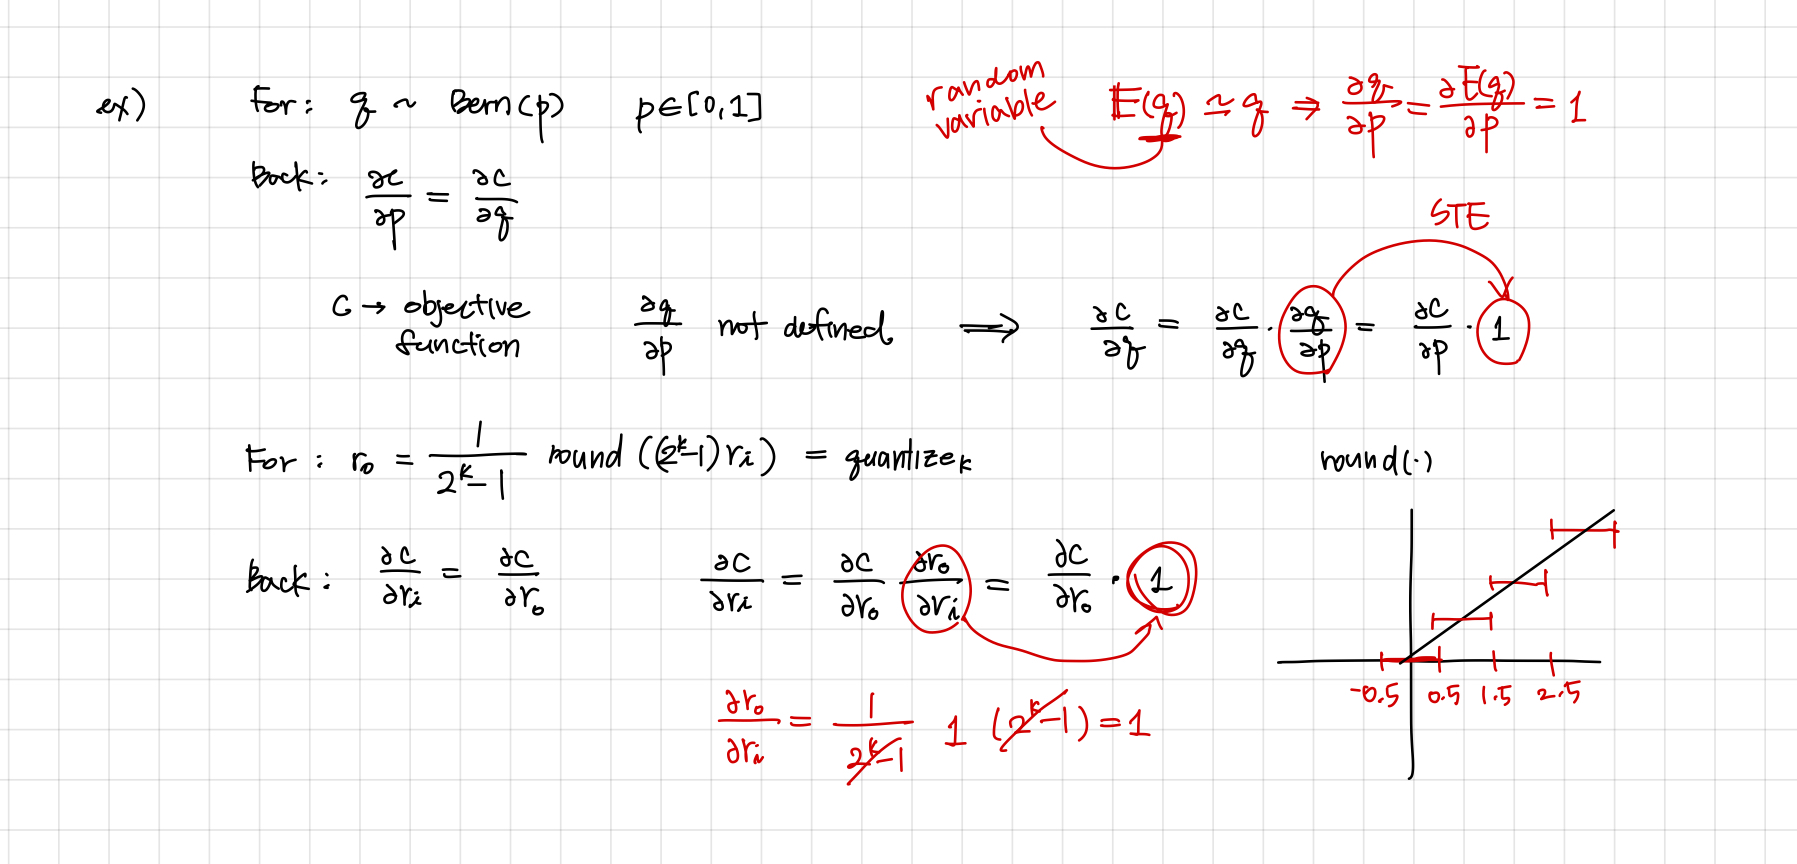 ex) For: q ~ Bern(p) p∈[0,1]
random variable
E(q) ≃ q ⇒ ∂q/∂p = ∂E(q)/∂p = 1
Back: ∂c/∂p = ∂c/∂q
STE
C → objective function
∂q/∂p not defined. ⟹ ∂c/∂q = ∂c/∂q · ∂q/∂p = ∂c/∂p · 1
For : r₀ = 1/(2ᵏ-1) round((2ᵏ-1)rᵢ) = quantizeₖ
round(·)
Back : ∂C/∂rᵢ = ∂C/∂r₀
∂C/∂rᵢ = ∂C/∂r₀ ∂r₀/∂rᵢ = ∂C/∂r₀ · 1
-0.5 0.5 1.5 2.5
∂r₀/∂rᵢ = 1/(2ᵏ-1) 1 (2ᵏ-1) = 1